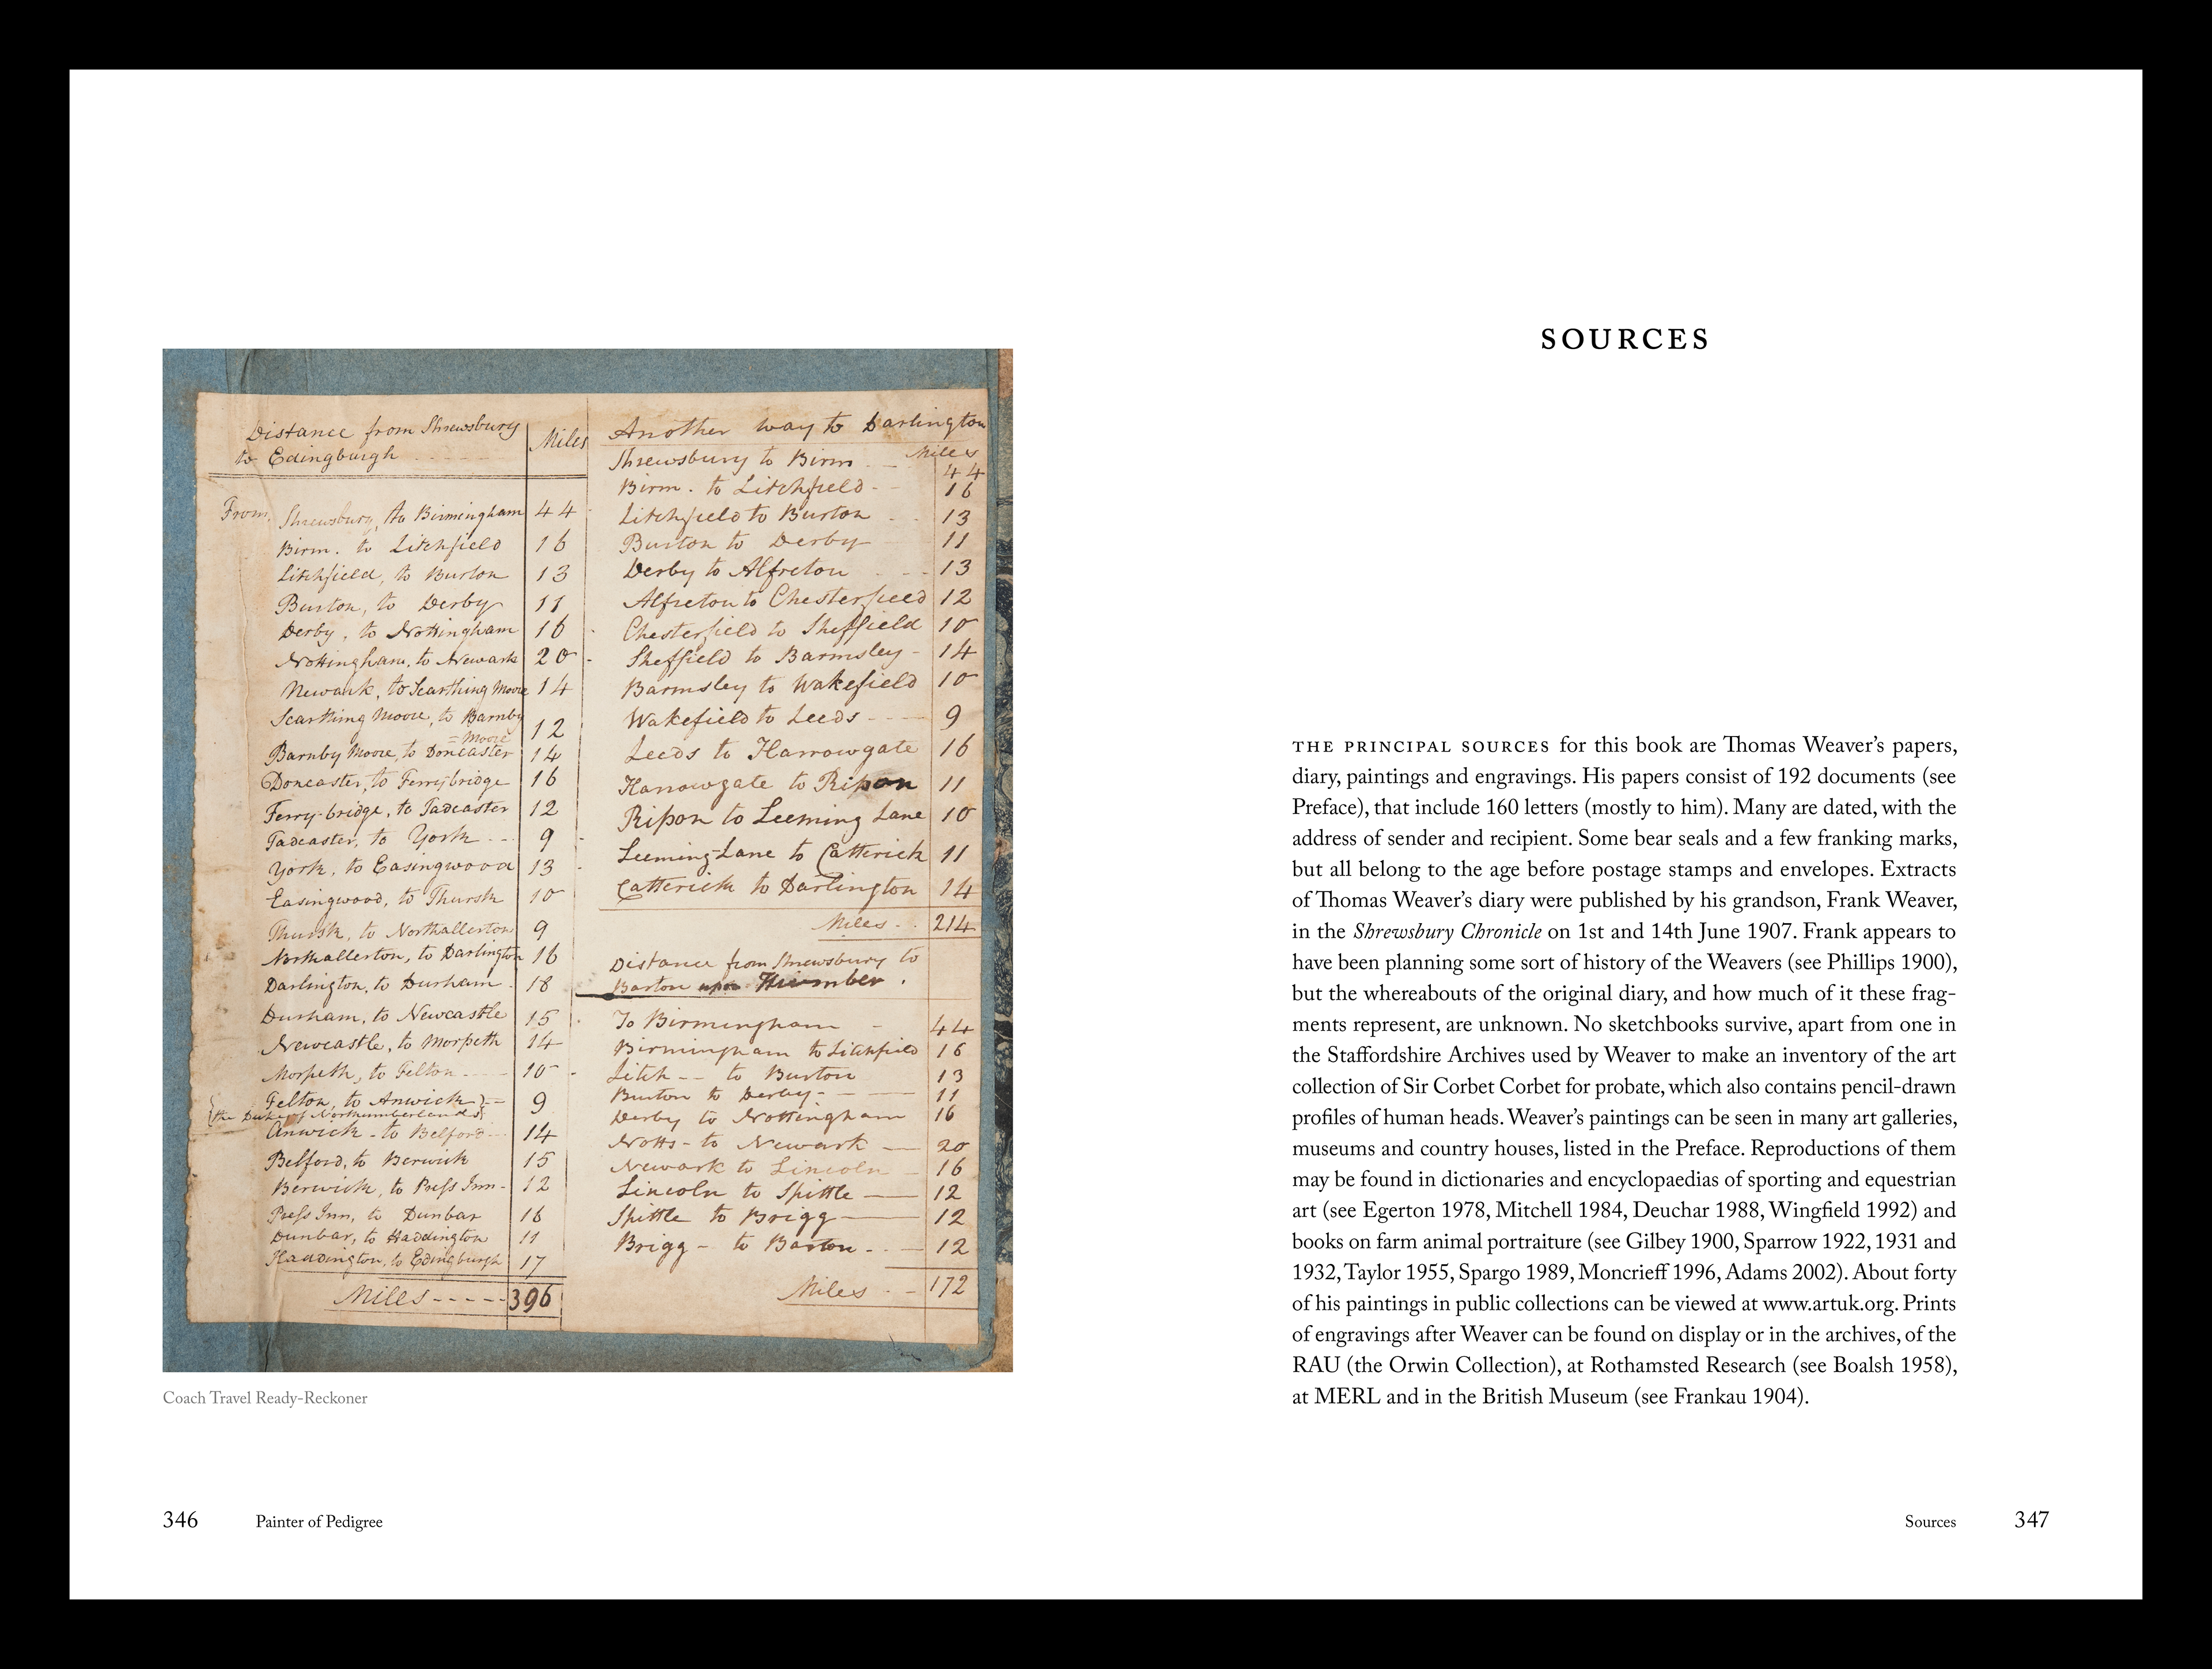 Distance from Shrewsbury
to Edingburgh
Miles
From, Shrewsbury, to Birmingham 44
Birm. to Litchfield 16
Litchfield, to Burton 13
Burton, to Derby 11
Derby, to Nottingham 16
Nottingham, to Newark 20
Newark, to Scarthing Moore 14
Scarthing Moore, to Barnby
= Moore 12
Barnby Moore, to Doncaster 14
Doncaster, to Ferrybridge 16
Ferry-bridge, to Tadcaster 12
Tadcaster, to York 9
York, to Easingwood 13
Easingwood, to Thursk 10
Thursk, to Northallerton 9
Northallerton, to Darlington 16
Darlington, to Durham 18
Durham, to Newcastle 15
Newcastle, to Morpeth 14
Morpeth, to Felton 10
Felton, to Anwick 9
(the Duke of Northumberlands)
Anwick - to Belford 14
Belford, to Berwick 15
Berwick, to Press Inn 12
Press Inn, to Dunbar 16
Dunbar, to Haddington 11
Haddington, to Edingburgh 17
Miles - - - - - 396
Another way to Darlington
Miles
Shrewsbury to Birm 44
Birm. to Litchfield 16
Litchfield to Burton 13
Burton to Derby 11
Derby to Alfreton 13
Alfreton to Chesterfield 12
Chesterfield to Sheffield 10
Sheffield to Barmsley 14
Barmsley to Wakefield 10
Wakefield to Leeds 9
Leeds to Harrowgate 16
Harrowgate to Ripon 11
Ripon to Leeming Lane 10
Leeming-Lane to Catterick 11
Catterick to Darlington 14
Miles 214
Distance from Shrewsbury to
Barton upon Humber.
To Birmingham 44
Birmingham to Litchfield 16
Litch -- to Burton 13
Burton to Derby 11
Derby to Nottingham 16
Notts - to Newark 20
Newark to Lincoln 16
Lincoln to Spittle 12
Spittle to Brigg 12
Brigg - to Barton 12
Miles 172
Coach Travel Ready-Reckoner
346 Painter of Pedigree
SOURCES
THE PRINCIPAL SOURCES for this book are Thomas Weaver’s papers,
diary, paintings and engravings. His papers consist of 192 documents (see
Preface), that include 160 letters (mostly to him). Many are dated, with the
address of sender and recipient. Some bear seals and a few franking marks,
but all belong to the age before postage stamps and envelopes. Extracts
of Thomas Weaver’s diary were published by his grandson, Frank Weaver,
in the Shrewsbury Chronicle on 1st and 14th June 1907. Frank appears to
have been planning some sort of history of the Weavers (see Phillips 1900),
but the whereabouts of the original diary, and how much of it these frag-
ments represent, are unknown. No sketchbooks survive, apart from one in
the Staffordshire Archives used by Weaver to make an inventory of the art
collection of Sir Corbet Corbet for probate, which also contains pencil-drawn
profiles of human heads. Weaver’s paintings can be seen in many art galleries,
museums and country houses, listed in the Preface. Reproductions of them
may be found in dictionaries and encyclopaedias of sporting and equestrian
art (see Egerton 1978, Mitchell 1984, Deuchar 1988, Wingfield 1992) and
books on farm animal portraiture (see Gilbey 1900, Sparrow 1922, 1931 and
1932, Taylor 1955, Spargo 1989, Moncrieff 1996, Adams 2002). About forty
of his paintings in public collections can be viewed at www.artuk.org. Prints
of engravings after Weaver can be found on display or in the archives, of the
RAU (the Orwin Collection), at Rothamsted Research (see Boalsh 1958),
at MERL and in the British Museum (see Frankau 1904).
Sources 347